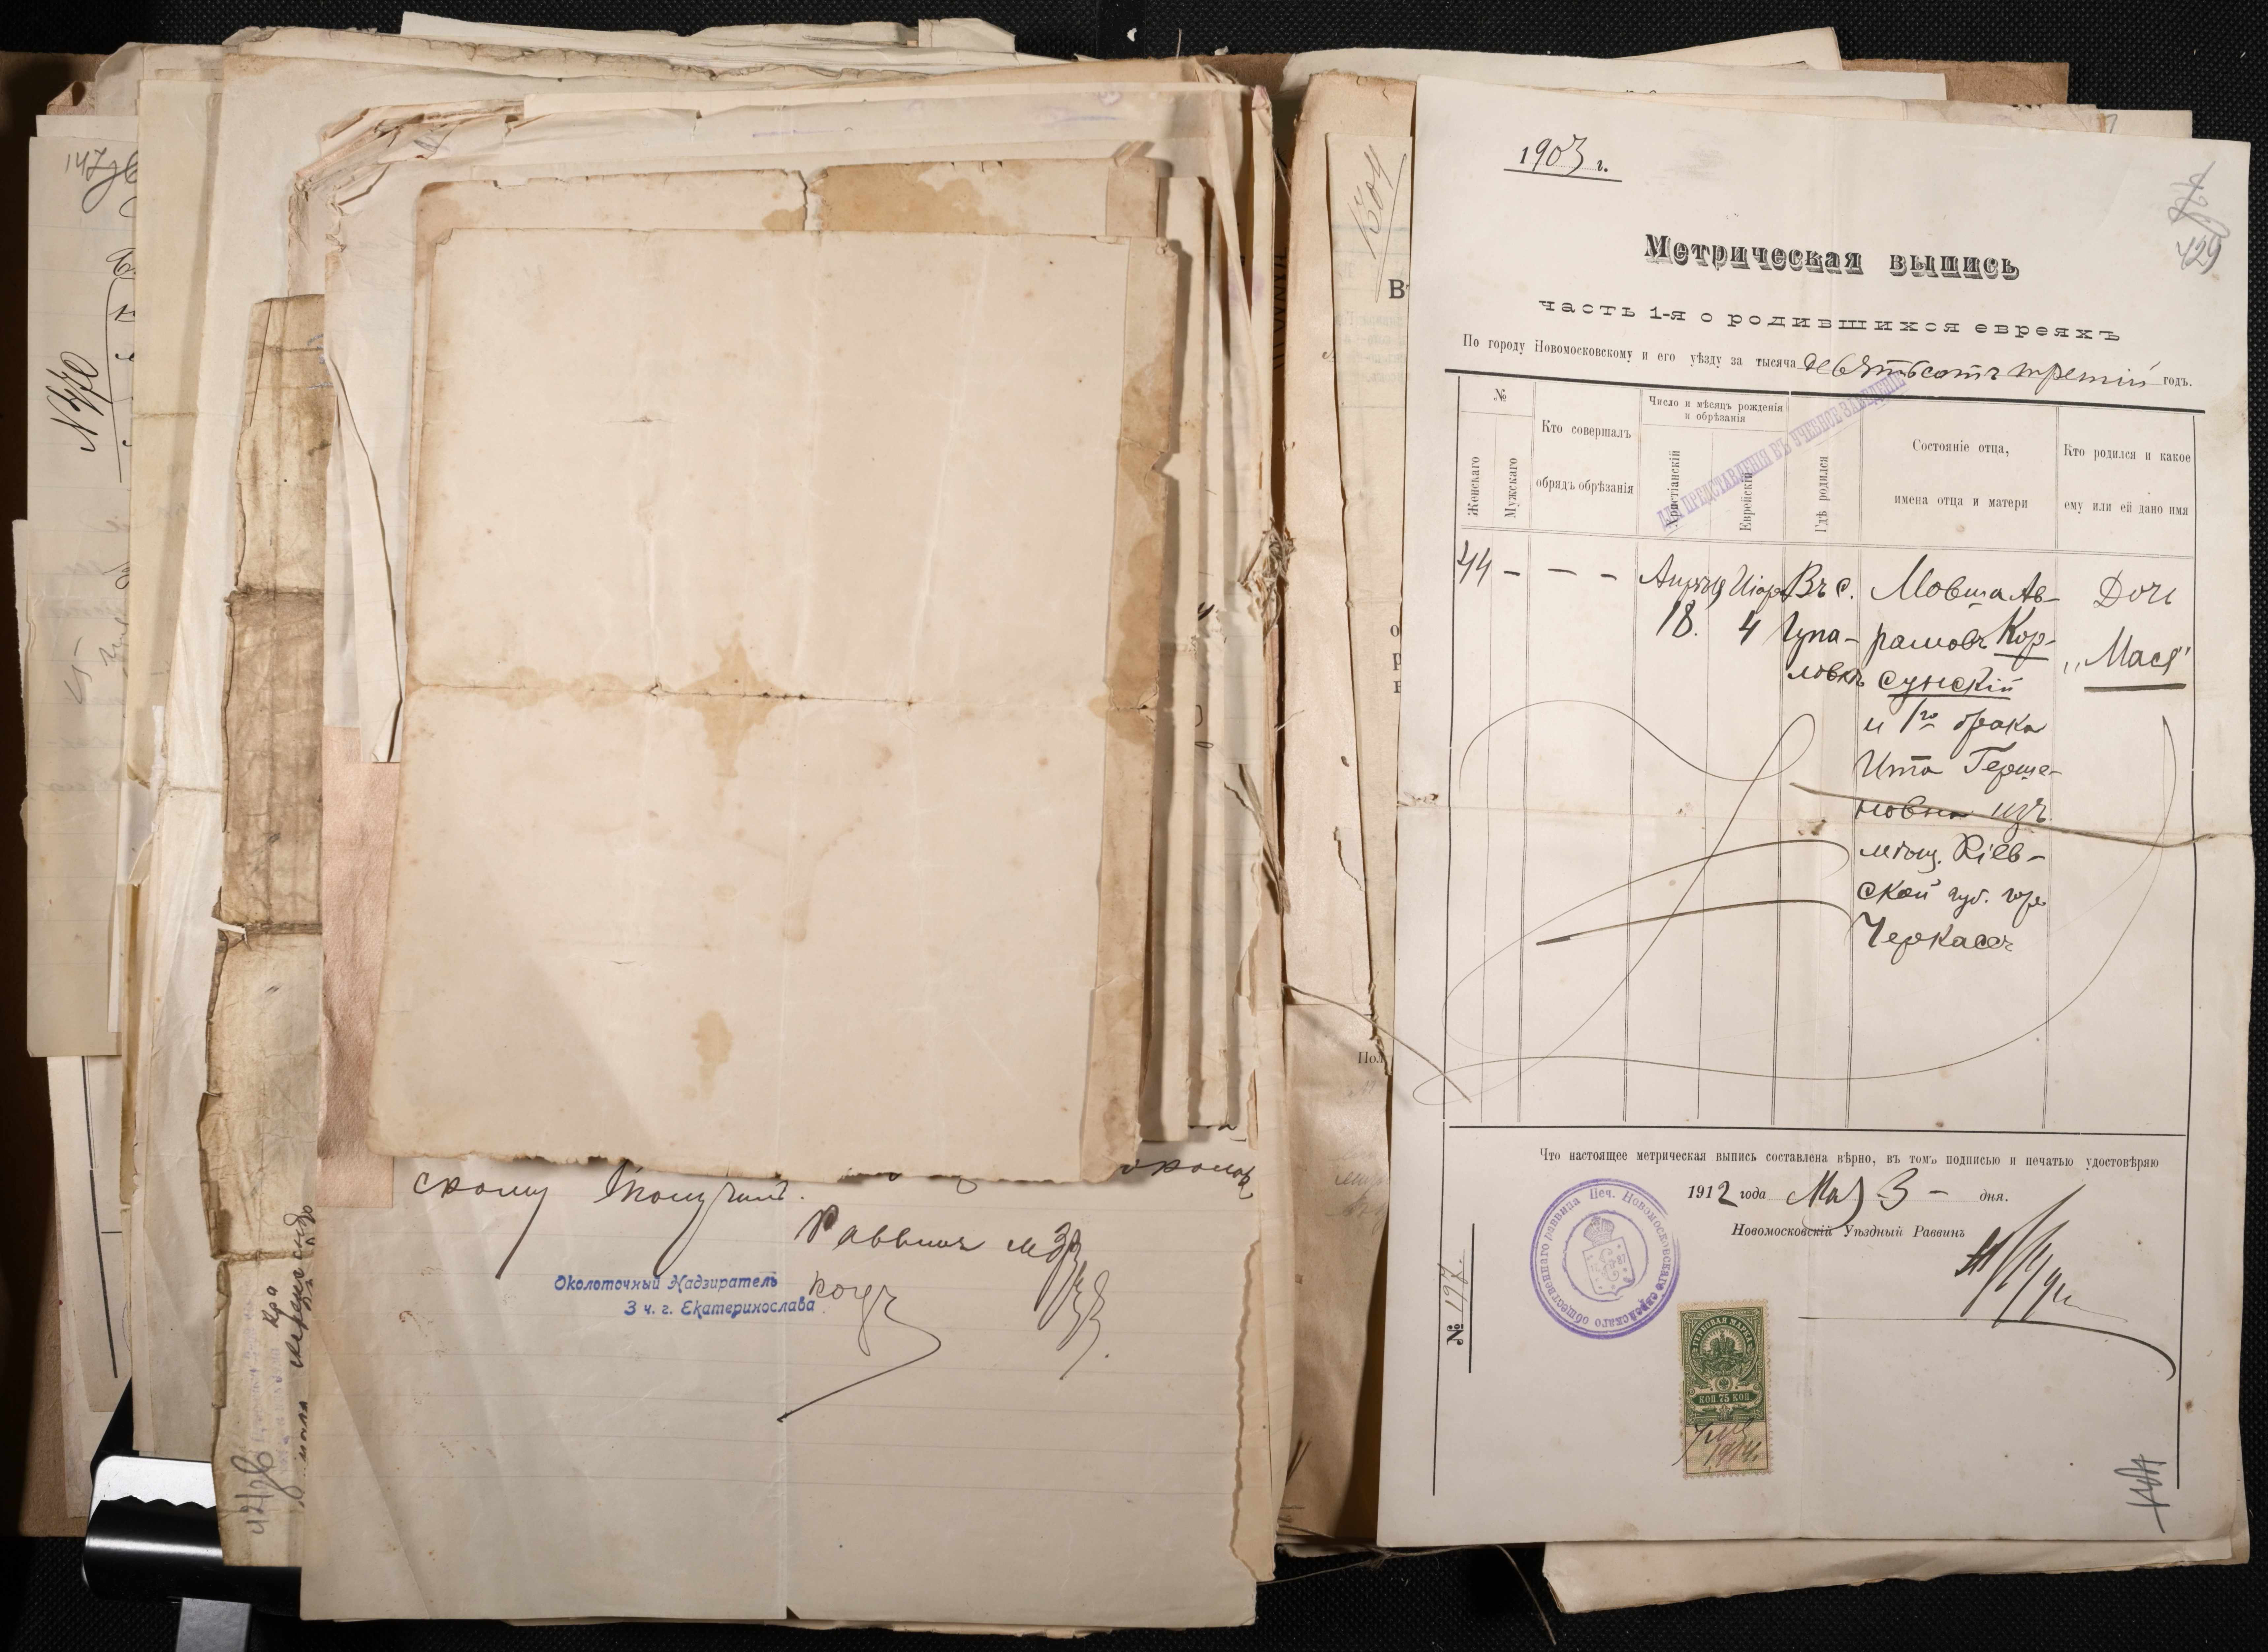 147 об
№ 470
скому получилъ.
Раввинъ
Околоточный Надзиратель
3 ч. г. Екатеринослава
В
Пол
1903 г.
429
Метрическая выпись
часть 1-я о родившихся евреяхъ
По городу Новомосковскому и его уѣзду за тысяча девятьсотъ третій годъ.
ДЛЯ ПРЕДСТАВЛЕНІЯ ВЪ УЧЕБНОЕ ЗАВЕДЕНІЕ
№
Женскаго
Мужскаго
Кто совершалъ
обрядъ обрѣзанія
Число и мѣсяцъ рожденія
и обрѣзанія
Христіанскій
Еврейскій
Гдѣ родился
Состояніе отца,
имена отца и матери
Кто родился и какое
ему или ей дано имя
44 – – – Апрѣля Ііоръ Въ с. Мовша Ав- Дочь
18. 4 Гупа- рамовъ Кор- „Мася"
ловкѣ сунскій
и 1го брака
Ита Герше-
новна изъ
мѣщ. Кіев-
ской губ. гор.
Черкасъ
Что настоящее метрическая выпись составлена вѣрно, въ томъ подписью и печатью удостовѣряю
1912 года Мая 3 – дня.
Новомосковскій Уѣздный Раввинъ
Печ. Новомосковскаго еврейскаго общественнаго раввина
№ 197.
ГЕРБОВАЯ МАРКА
КОП 75 КОП